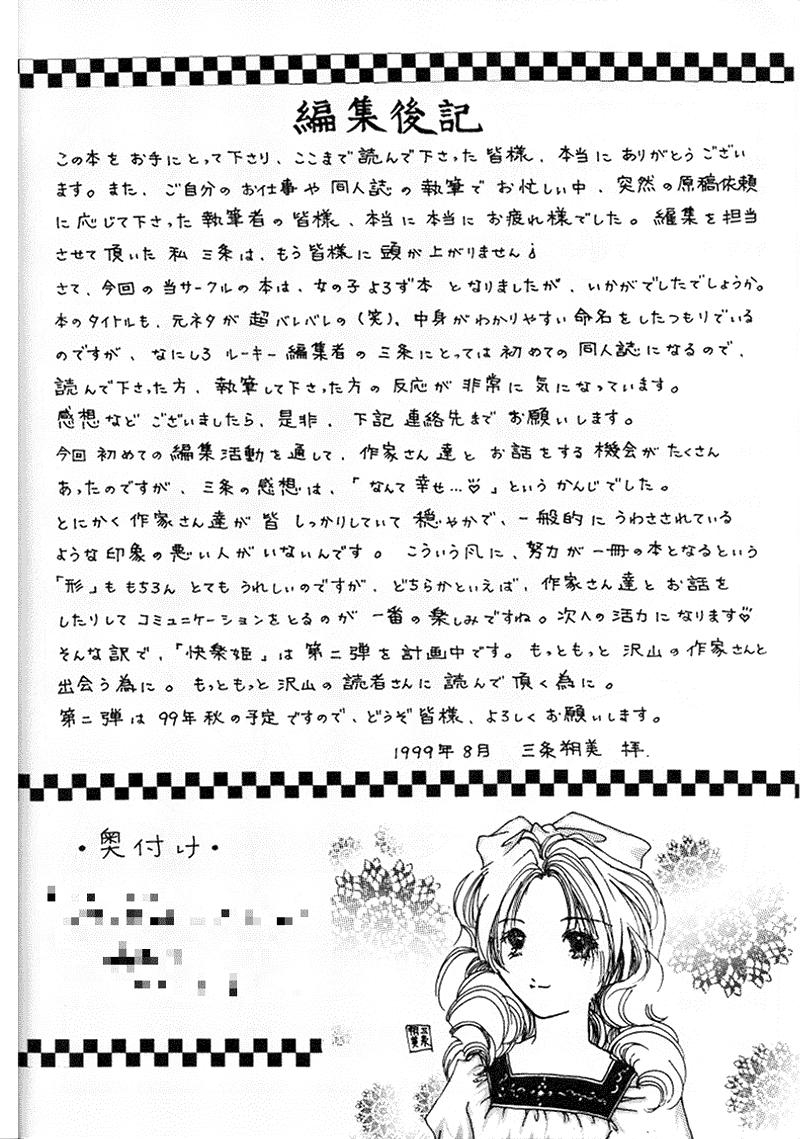 編集後記
この本を お手にとって下さり、ここまで 読んで下さった 皆様、本当に ありがとうござい
ます。また、ご自分の お仕事や 同人誌の 執筆で お忙しい中、突然の原稿依頼
に応じて下さった 執筆者の 皆様、本当に 本当に お疲れ様でした。編集を担当
させて頂いた 私 三条は、もう皆様に 頭が上がりません♩
さて、今回の 当サークルの本は、女の子よろず本 となりましたが、いかがでしたでしょうか。
本のタイトルも、元ネタが 超バレバレの(笑)、中身がわかりやすい 命名をしたつもりでいる
のですが、なにしろ ルーキー編集者の 三条にとっては 初めての 同人誌になるので、
読んで下さった方、執筆して下さった方の 反応が 非常に 気になっています。
感想など ございましたら、是非、下記 連絡先まで お願いします。
今回 初めての 編集活動を通して、作家さん達と お話をする 機会がたくさん
あったのですが、三条の感想は、「なんて幸せ…♡」というかんじでした。
とにかく 作家さん達が 皆 しっかりしていて 穏やかで、一般的に うわさされている
ような 印象の 悪い人が いないんです。 こういう風に、努力が 一冊の本となるという
「形」も もちろん とても うれしいのですが、どちらかといえば、作家さん達と お話を
したりして コミュニケーションをとるのが 一番の楽しみですね。次への 活力になります♡
そんな訳で、「快楽姫」は 第二弾を計画中です。もっともっと 沢山の 作家さんと
出会う為に。 もっともっと 沢山の 読者さんに 読んで頂く為に。
第二弾は 99年秋の予定ですので、どうぞ皆様、よろしくお願いします。
1999年8月 三条朔美 拝.
・奥付け・
三条
朔美